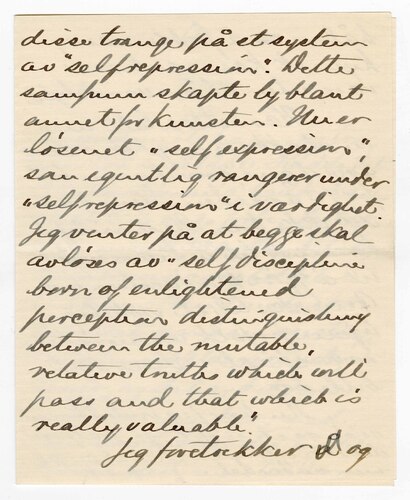 disse trange på et system
av "selfrepression". Dette
samfunn skapte ly blant
annet for kunsten. Nu er
løsenet "self expression",
som egentlig rangerer under
"selfrepression" i værdighet.
Jeg venter på at begge skal
avløses av "self discipline
born of enlightened
perception distinguishing
between the mutable,
relative truths which will
pass and that which is
really valuable".
Jeg foretrekker og